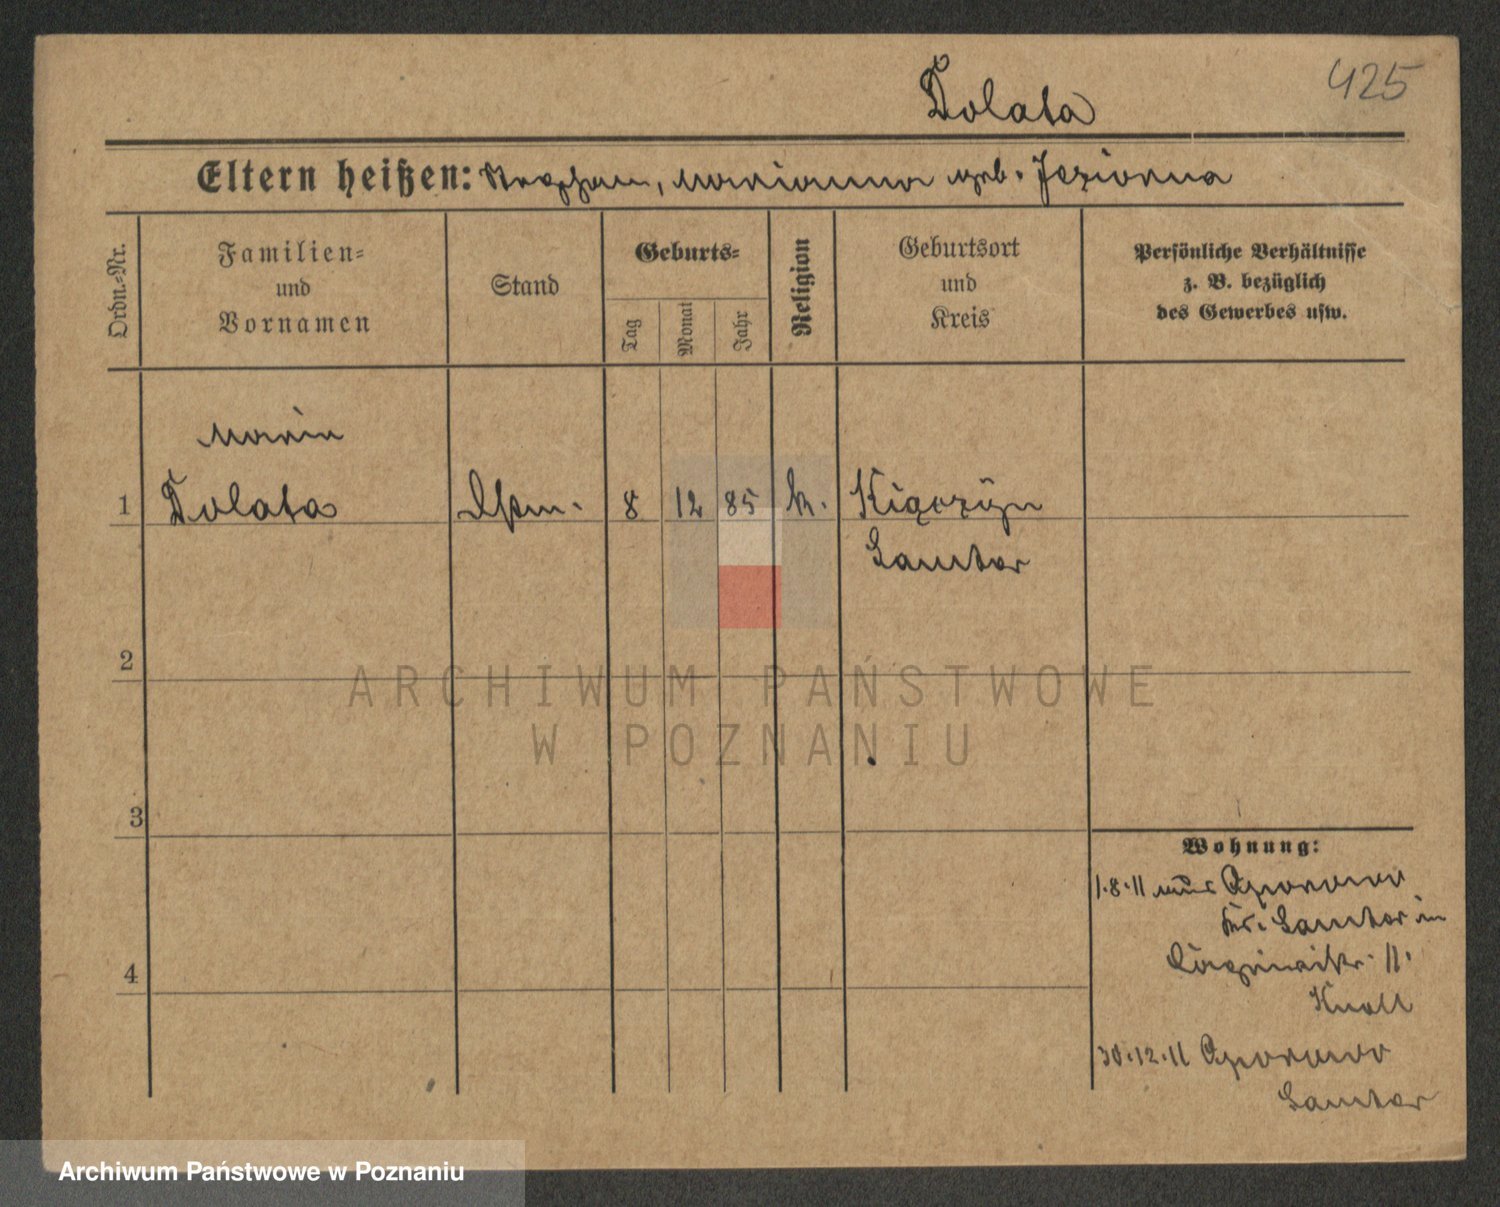 Dolata
425
Eltern heißen: Stephan, Marianna geb. Jeziorna
Ordn.-Nr.
Familien-
und
Vornamen
Stand
Geburts-
Tag
Monat
Jahr
Religion
Geburtsort
und
Kreis
Persönliche Verhältnisse
z. B. bezüglich
des Gewerbes usw.
Maria
1 Dolata 8 12 85 k.
Samter
2
3
4
Wohnung:
1.8.11 aus
Kr. Samter in
11.
Knoll
30.12.11
Samter
ARCHIWUM PAŃSTWOWE
W POZNANIU
Archiwum Państwowe w Poznaniu